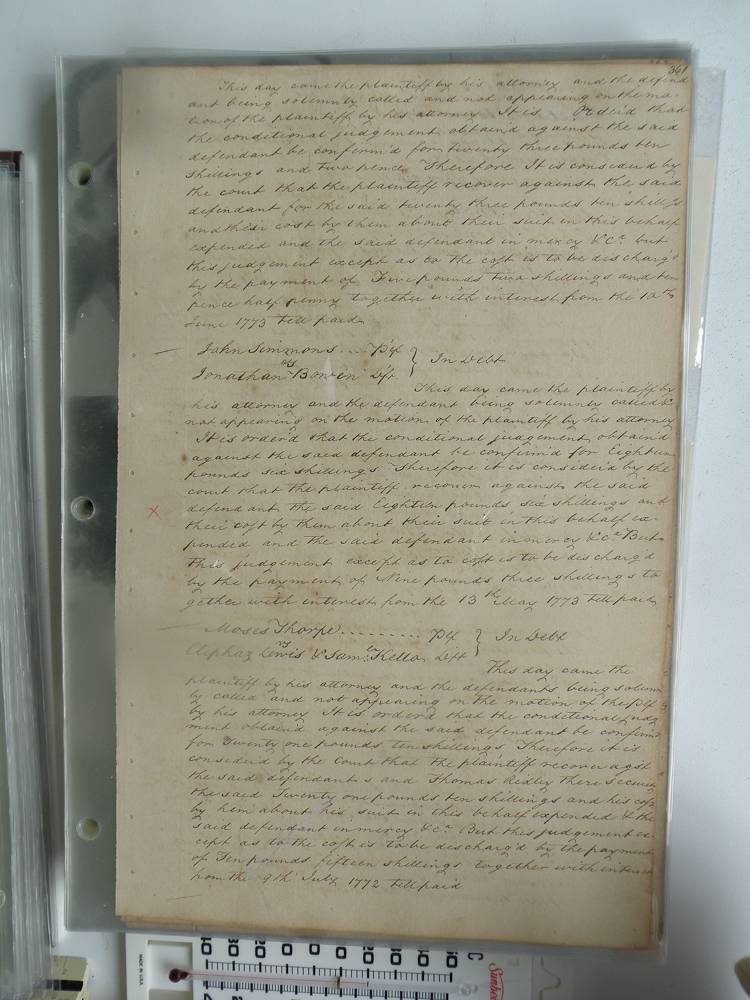 361
This day came the plaintiff by his attorney and the defend
ant being solemnly called and not appearing on the mo-
tion of the plaintiff by his attorney It is Orderd that
the conditional judgement obtain'd against the said
defendant be confirm'd for twenty three pounds ten
shillings and two pence Therefore It is considerd by
the court that the plaintiff recover against the said
defendant for the said twenty three pounds ten shills
and their cost by them about their suit in this behalf
expended and the said defendant in mercy &Ca. but
this judgement except as to the cost is to be discharg'd
by the payment of Five pounds two shillings and ten
pence half penny together with interest from the 10th
June 1773 till paid
John Simmons ... Ptf } In Debt
vs
Jonathan Bowen Dft
This day came the plaintiff by
his attorney and the defendant being solemnly called &
not appearing on the motion of the plaintiff by his attorney
It is order'd that the conditional judgement obtain'd
against the said defendant be confirm'd for Eighteen
pounds six shillings Therefore it is consider'd by the
court that the plaintiff recover against the said
defendant the said Eighteen pounds six shillings and
their cost by them about their suit in this behalf ex-
pended and the said defendant in mercy &Ca But
this judgement except as to cost is to be discharg'd
by the payment of Nine pounds three shillings to
gether with interest from the 13th May 1773 till paid
Moses Thorpe ......... Ptf } In Debt
vs
Eliphaz Lewis & Saml. Kello Dft
This day came the
plaintiff by his attorney and the defendants being solemn
ly called and not appearing on the motion of the Ptf
by his attorney It is orderd that the conditional judg
ment obtain'd against the said defendant be confirm'd
for Twenty one pounds ten shillings Therefore it is
consider'd by the Court that the plaintiff recover agst
the said defendants and Thomas Ridley there security
the said Twenty one pounds ten shillings and his cost
by him about his suit in this behalf expended & the
said defendant in mercy &Ca. But this judgement ex-
cept as to the cost is to be discharg'd by the payment
of Ten pounds fifteen shillings together with interest
from the 9th July 1772 till paid
MADE IN U.S.A.
40 30 20 10 0 10 20 30 40 50 C